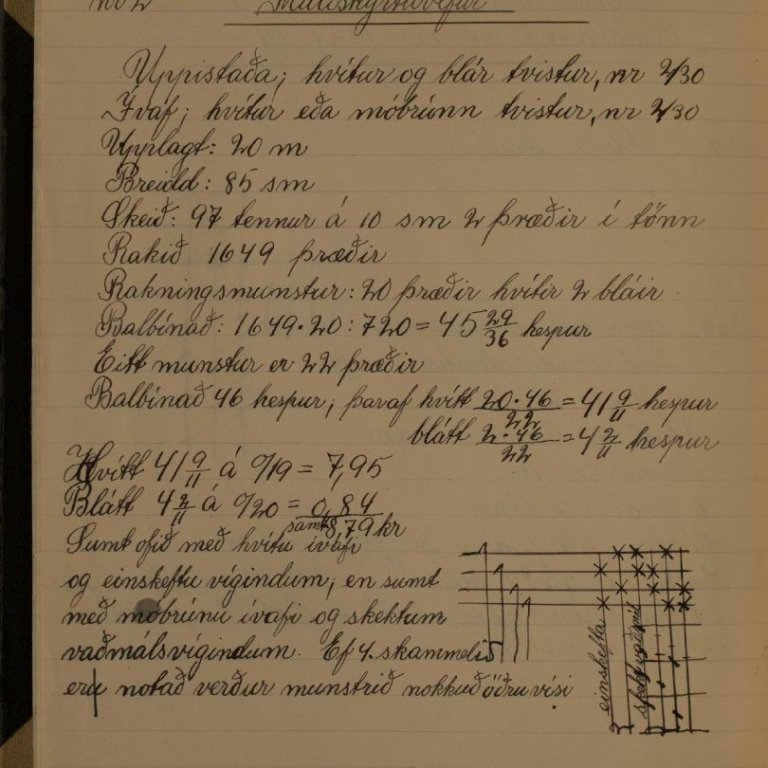 No 2 Milliskyrtuvefur
Uppistaða; hvítur og blár tvistur, nr 2/30
Ívaf; hvítur eða móbrúnn tvistur, nr 2/30
Upplagt: 20 m
Breidd: 85 sm
Skeið: 97 tennur á 10 sm 2 þræðir í tönn
Rakið 1649 þræðir
Rakningsmunstur: 20 þræðir hvítir 2 bláir
Balbínað: 1649·20:720 = 45 29/36 hespur
Eitt munstur er 22 þræðir
Balbínað 46 hespur; þaraf hvítt 20·46/22 = 41 9/11 hespur
blátt 2·46/22 = 4 2/11 hespur
Hvítt 41 9/11 á 0/19 = 7,95
Blátt 4 2/11 á 0/20 = 0,84
samt 8,79 kr
Sumt ofið með hvítu ívafi
og einskeftu vígindum; en sumt
með móbrúnu ívafi og skektum
vaðmálsvígindum. Ef 4. skammelið
er notað verður munstrið nokkuð öðru vísi
einskefta